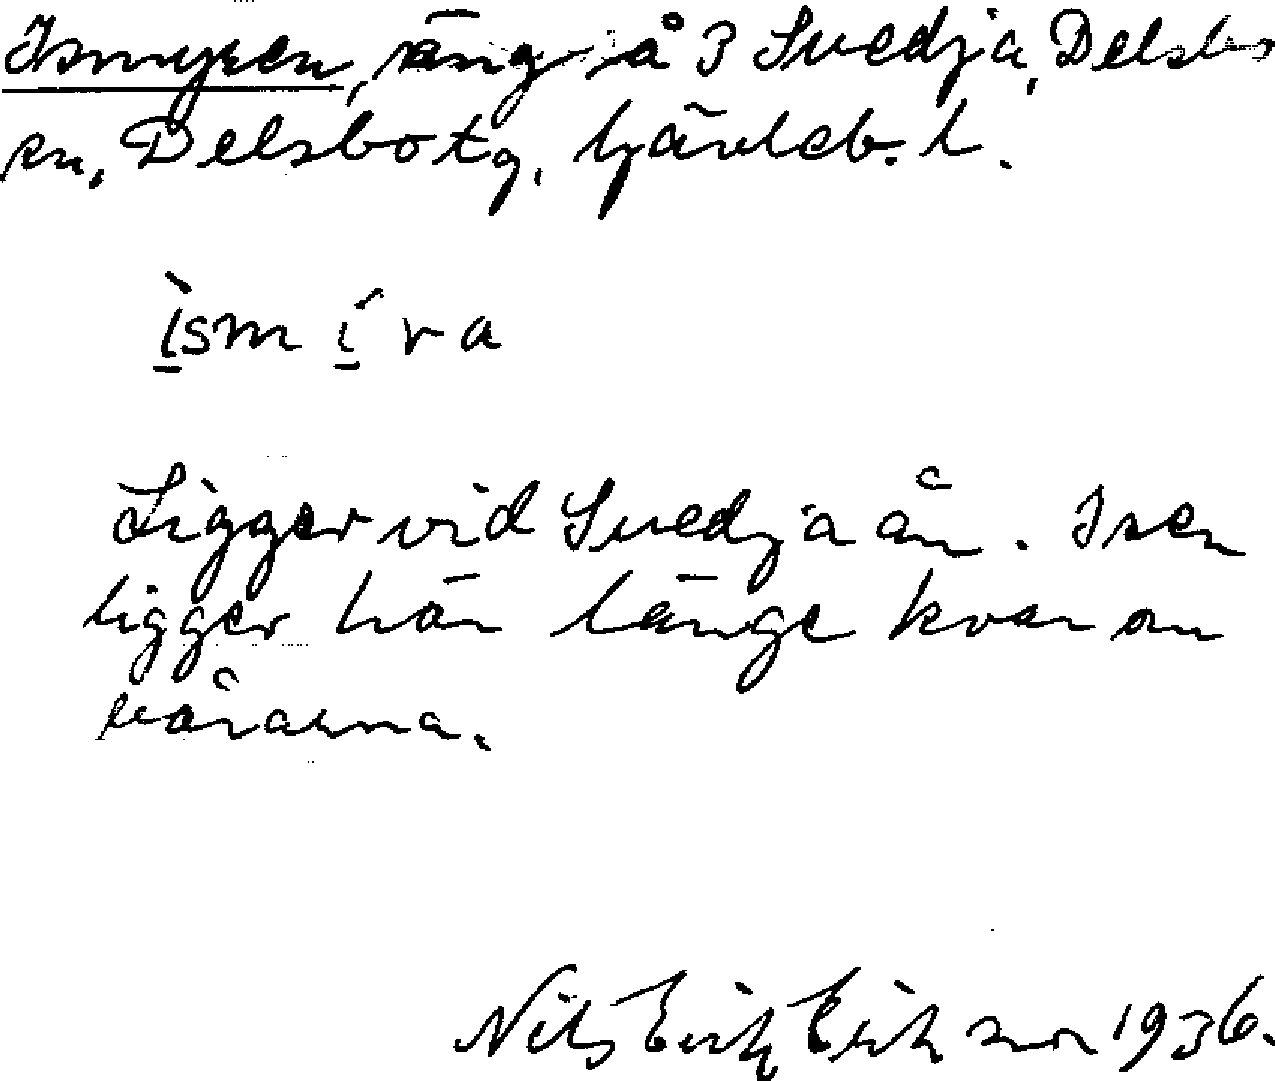 Ismyren, äng å 3 Svedja, Delsbo
sn, Delsbo tg, Gävleb. l.
ìsm í ra
Ligger vid Svedjaån. Isen
ligger här länge kvar om
vårarna.
Nils Erik Eriksson 1936.